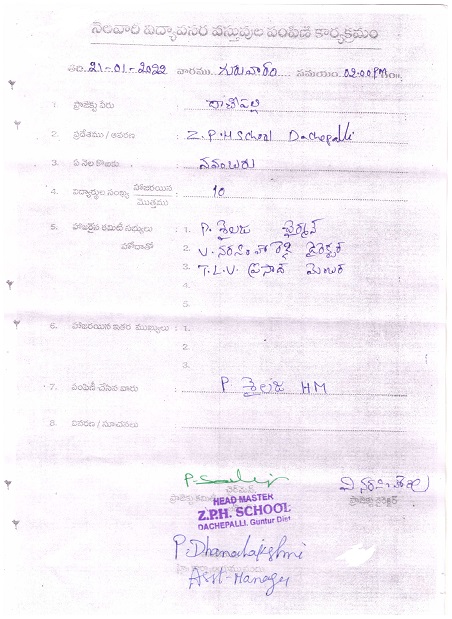 నెలవారి విద్యావసర వస్తువుల పంపిణి కార్యక్రమం
తేది. 21-01-2022 వారము. గురువారం.... సమయం. 02.00 PM గం.
1. ప్రాజెక్టు పేరు : దాచేపల్లి
2. ప్రదేశము / ఆవరణ : Z.P.H School Dachepalli
3. ఏ నెల కొఱకు : నవంబరు
4. విద్యార్థుల సంఖ్య హాజరయిన మొత్తము : 10
5. హాజరైన కమిటి సభ్యులు : 1. P. శైలజ ఛైర్మన్
హోదాతో 2. V. నరసింహా రెడ్డి డైరెక్టర్
3. T.L.V. ప్రసాద్ మెంబర్
4.
5.
6. హాజరయిన ఇతర ముఖ్యులు : 1.
2.
3.
7. పంపిణీ చేసిన వారు : P. శైలజ HM
8. వివరణ / సూచనలు :
ప్రాజెక్టు డైరెక్టర్
HEAD MASTER
Z.P.H. SCHOOL
DACHEPALLI, Guntur Dist
P. Dhanalakshmi
Asst-Manager